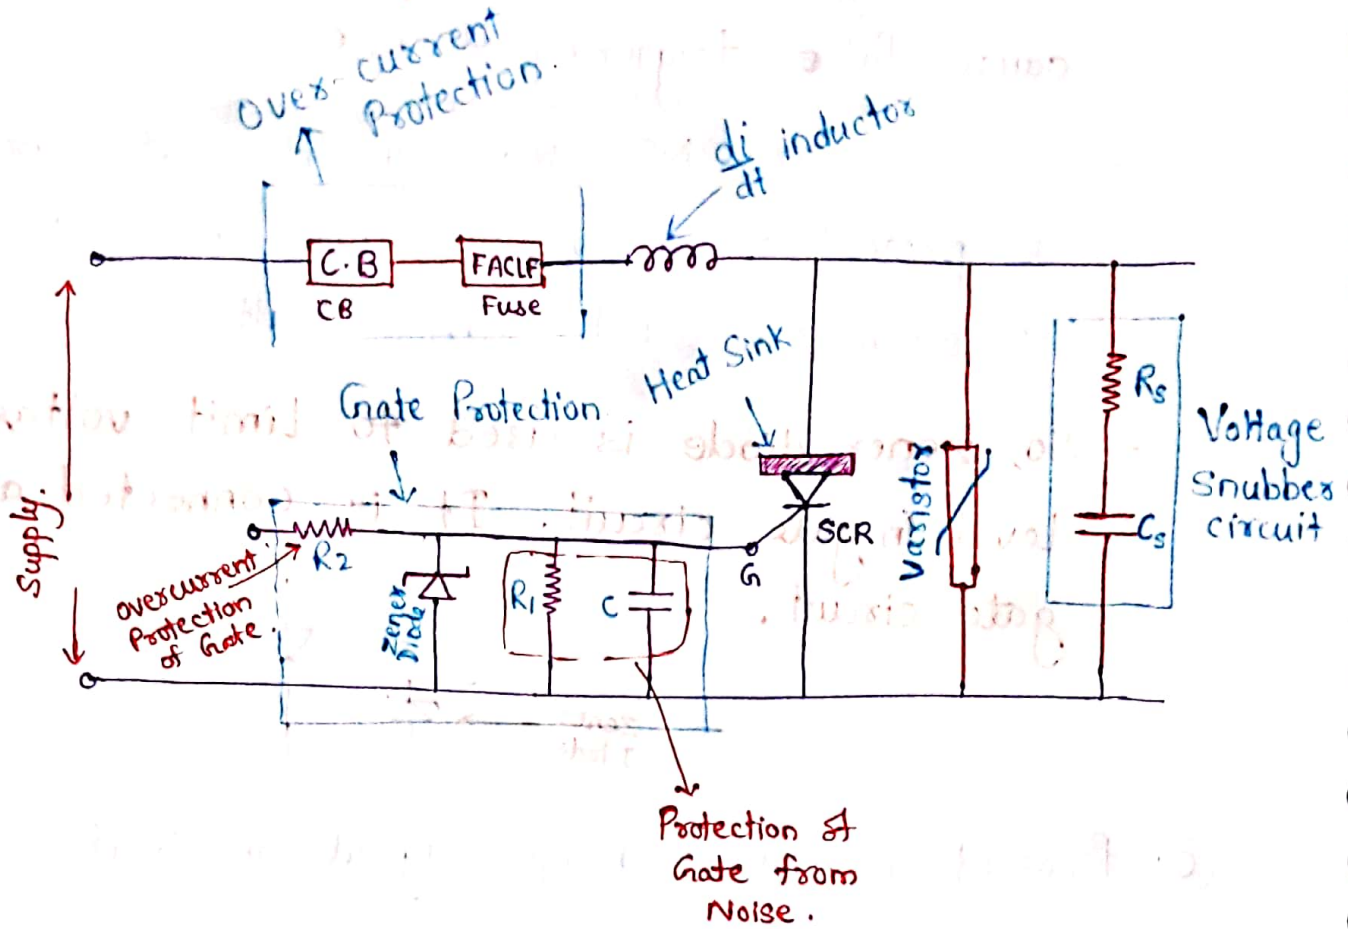 Over-current
Protection.
di
dt
inductor
C.B
FACLF
CB
Fuse
Heat Sink
Gate Protection
Supply.
R2
overcurrent
Protection
of Gate.
Zener
Diode
R1
C
G
SCR
Varistor
Rs
Cs
Voltage
Snubber
circuit
Protection of
Gate from
Noise.